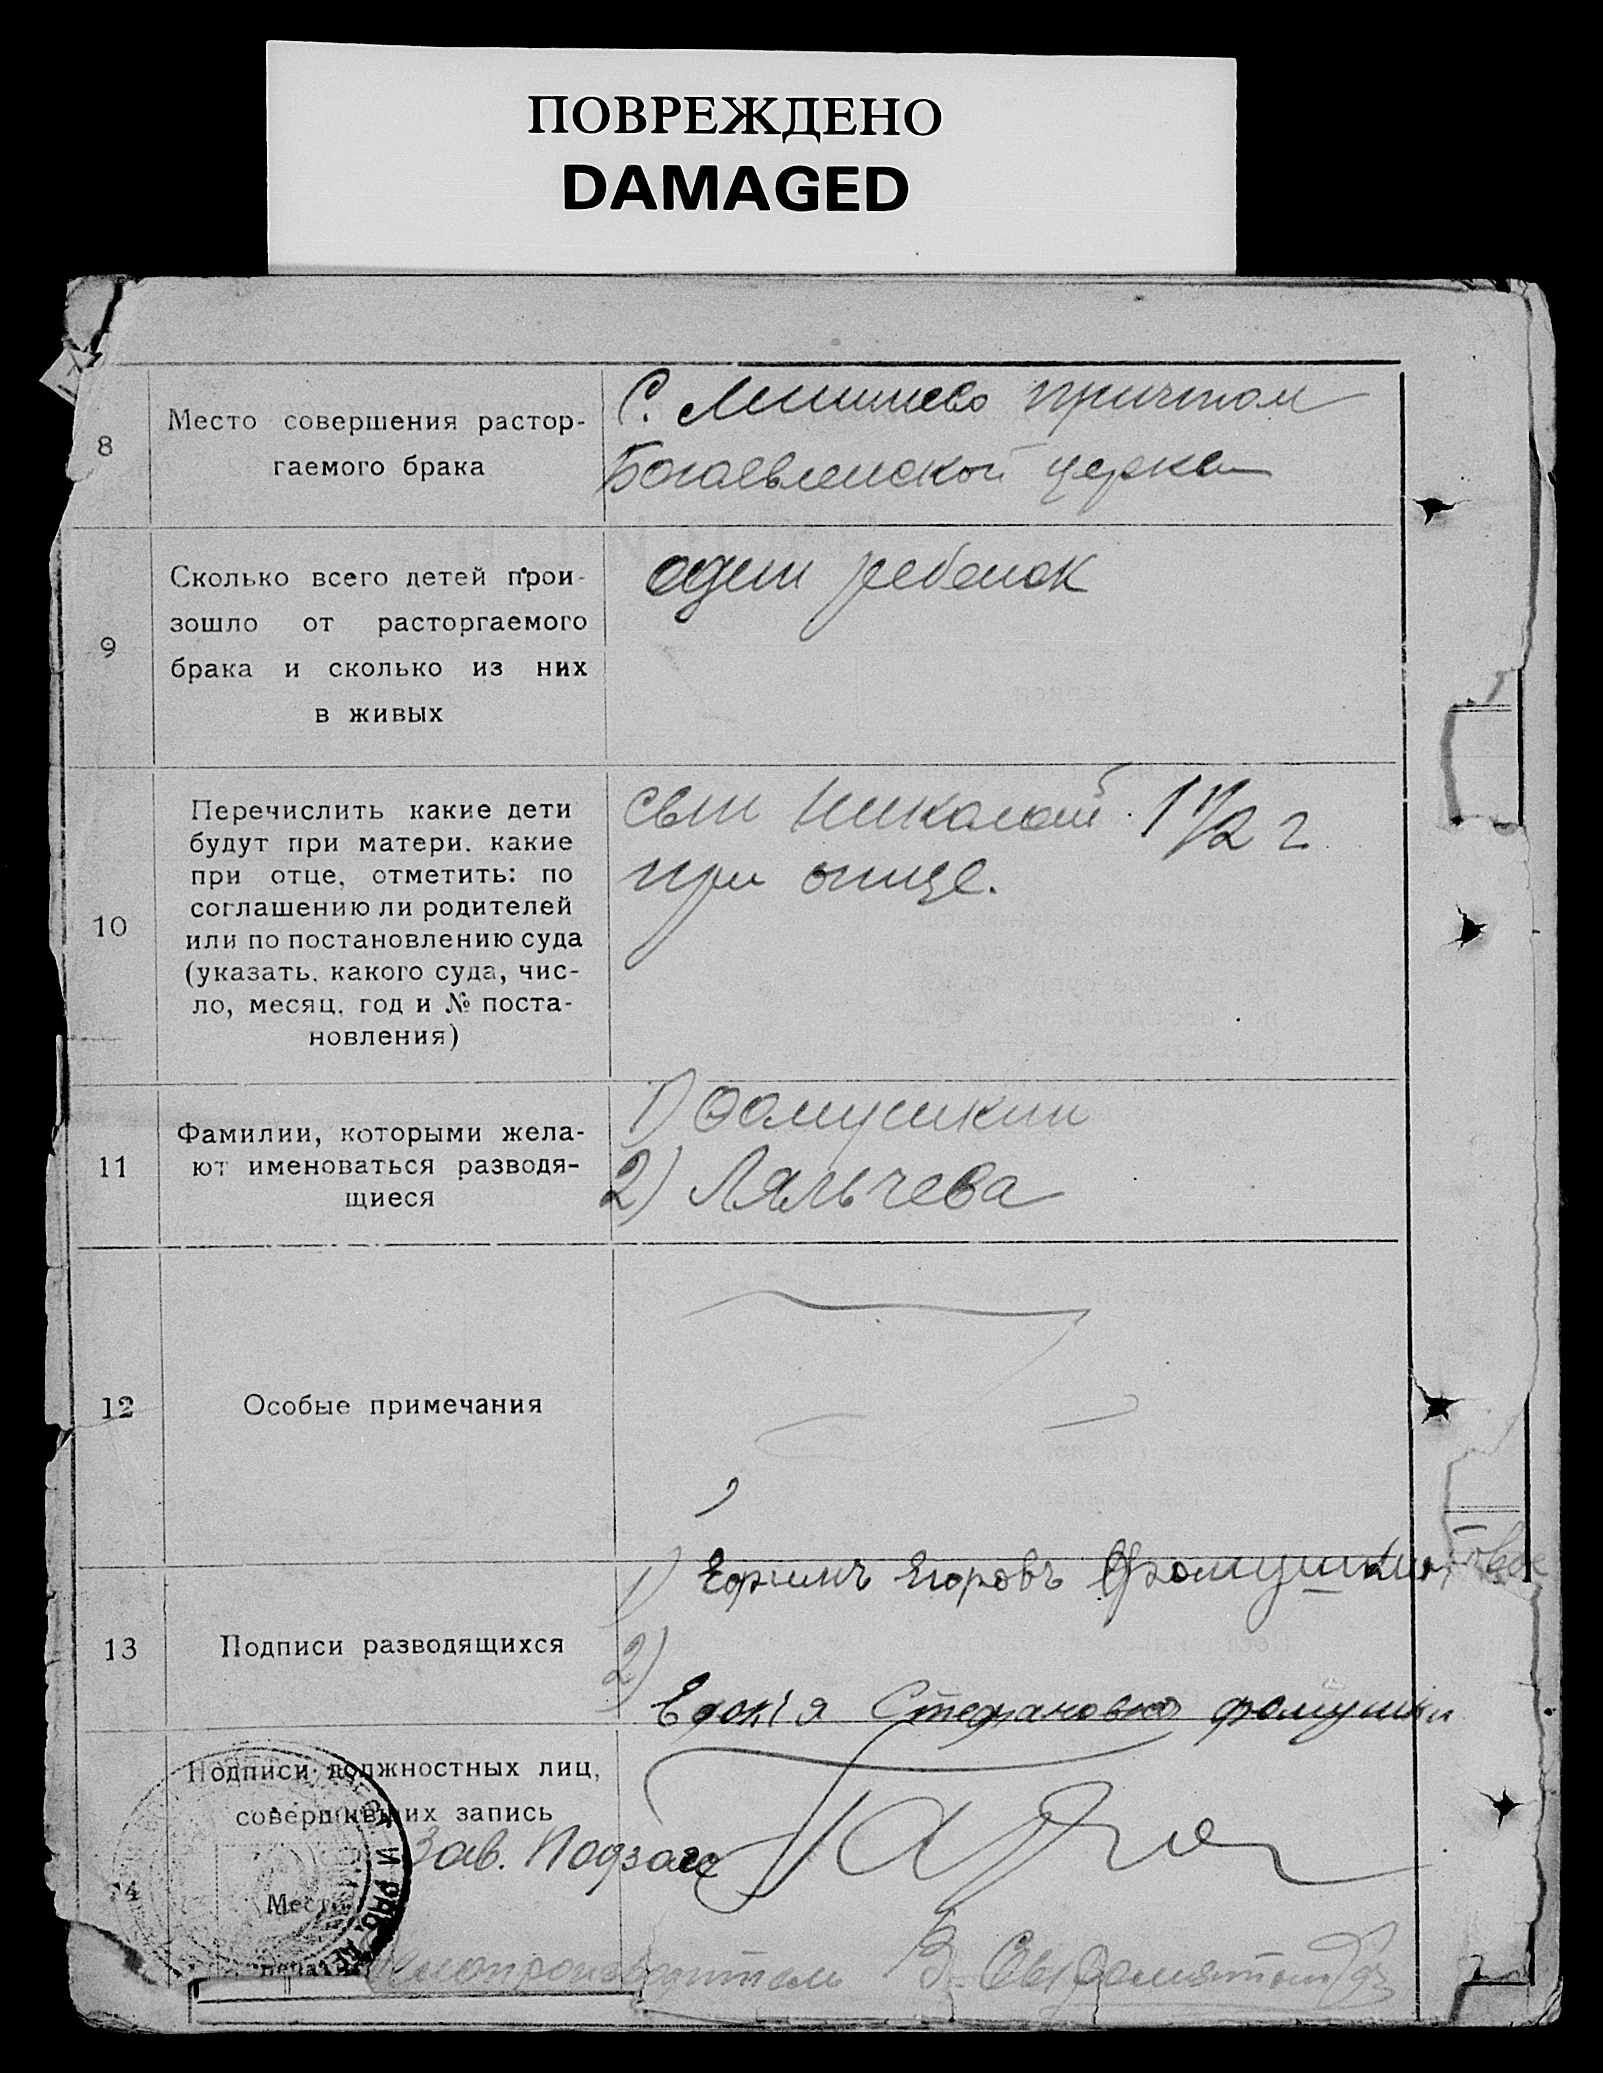 ПОВРЕЖДЕНО
DAMAGED
8
Место совершения расторгаемого брака
С. причтом
Богоевленской церкви
9
Сколько всего детей прои-
зошло от расторгаемого
брака и сколько из них
в живых
один ребенок
10
Перечислить какие дети
будут при матери. какие
при отце, отметить: по
соглашению ли родителей
или по постановлению суда
(указать, какого суда, чис-
ло, месяц, год и № поста-
новления)
сын Николай 1 1/2 г
при отце.
11
Фамилии, которыми жела-
ют именоваться разводя-
щиеся
1) Фомушкин
2) Ляльчева
12
Особые примечания
13
Подписи разводящихся
1) Ефимъ Егоровъ
2)
Стефановна
Подписи должностных лиц,
совершивших запись
Зав.
Место
печати
Делопроизводитель В.